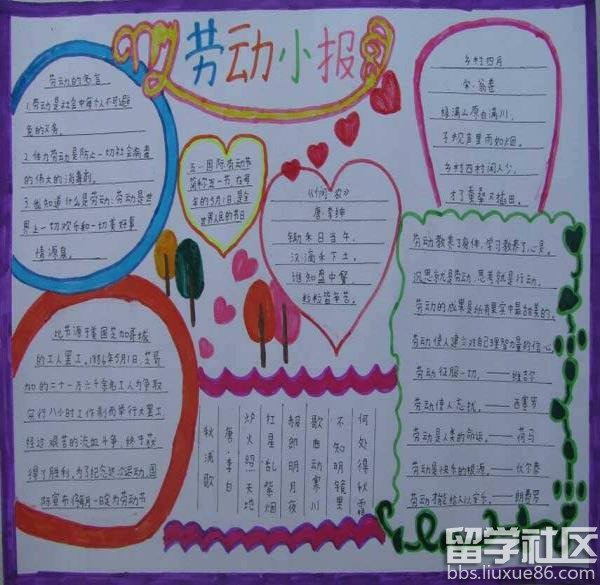 劳动小报
劳动的名言
1.劳动是社会中每个人不可避
免的义务。
2.体力劳动是防止一切社会病毒
的伟大的消毒剂。
3.我知道什么是劳动:劳动是世
界上一切欢乐和一切美好事
情源泉。
五一国际劳动节
简称五一节,在每
年的5月1日,是全
世界人民的节日
《悯农》
唐·李绅
锄禾日当午,
汗滴禾下土。
谁知盘中餐,
粒粒皆辛苦。
乡村四月
宋·翁卷
绿满山原白满川,
子规声里雨如烟。
乡村四月闲人少,
才了蚕桑又插田。
此节源于美国芝加哥城
的工人罢工。1886年5月1日,芝哥
加的二十一万六千余名工人为争取
实行八小时工作制而举行大罢工
经过艰苦的流血斗争,终于获
得了胜利。为了纪念这次运动,国
际宣布将每月一日定为劳动节
秋浦歌
唐·李白
炉火照天地
红星乱紫烟
赧郎明月夜
歌曲动寒川
不知明镜里
何处得秋霜
劳动教养了身体,学习教养了心灵。
沉思就是劳动,思考就是行动。
劳动的成果是所有果实中最甜美的。
劳动使人建立对自己理智力量的信心
劳动征服一切。——维吉尔
劳动使人忘忧。——西塞罗
劳动是人类的命运。——荷马
劳动是快乐的根源。——伏尔泰
劳动才能给人以安乐。——朗费罗
留学社区
bbs.liuxue86.com